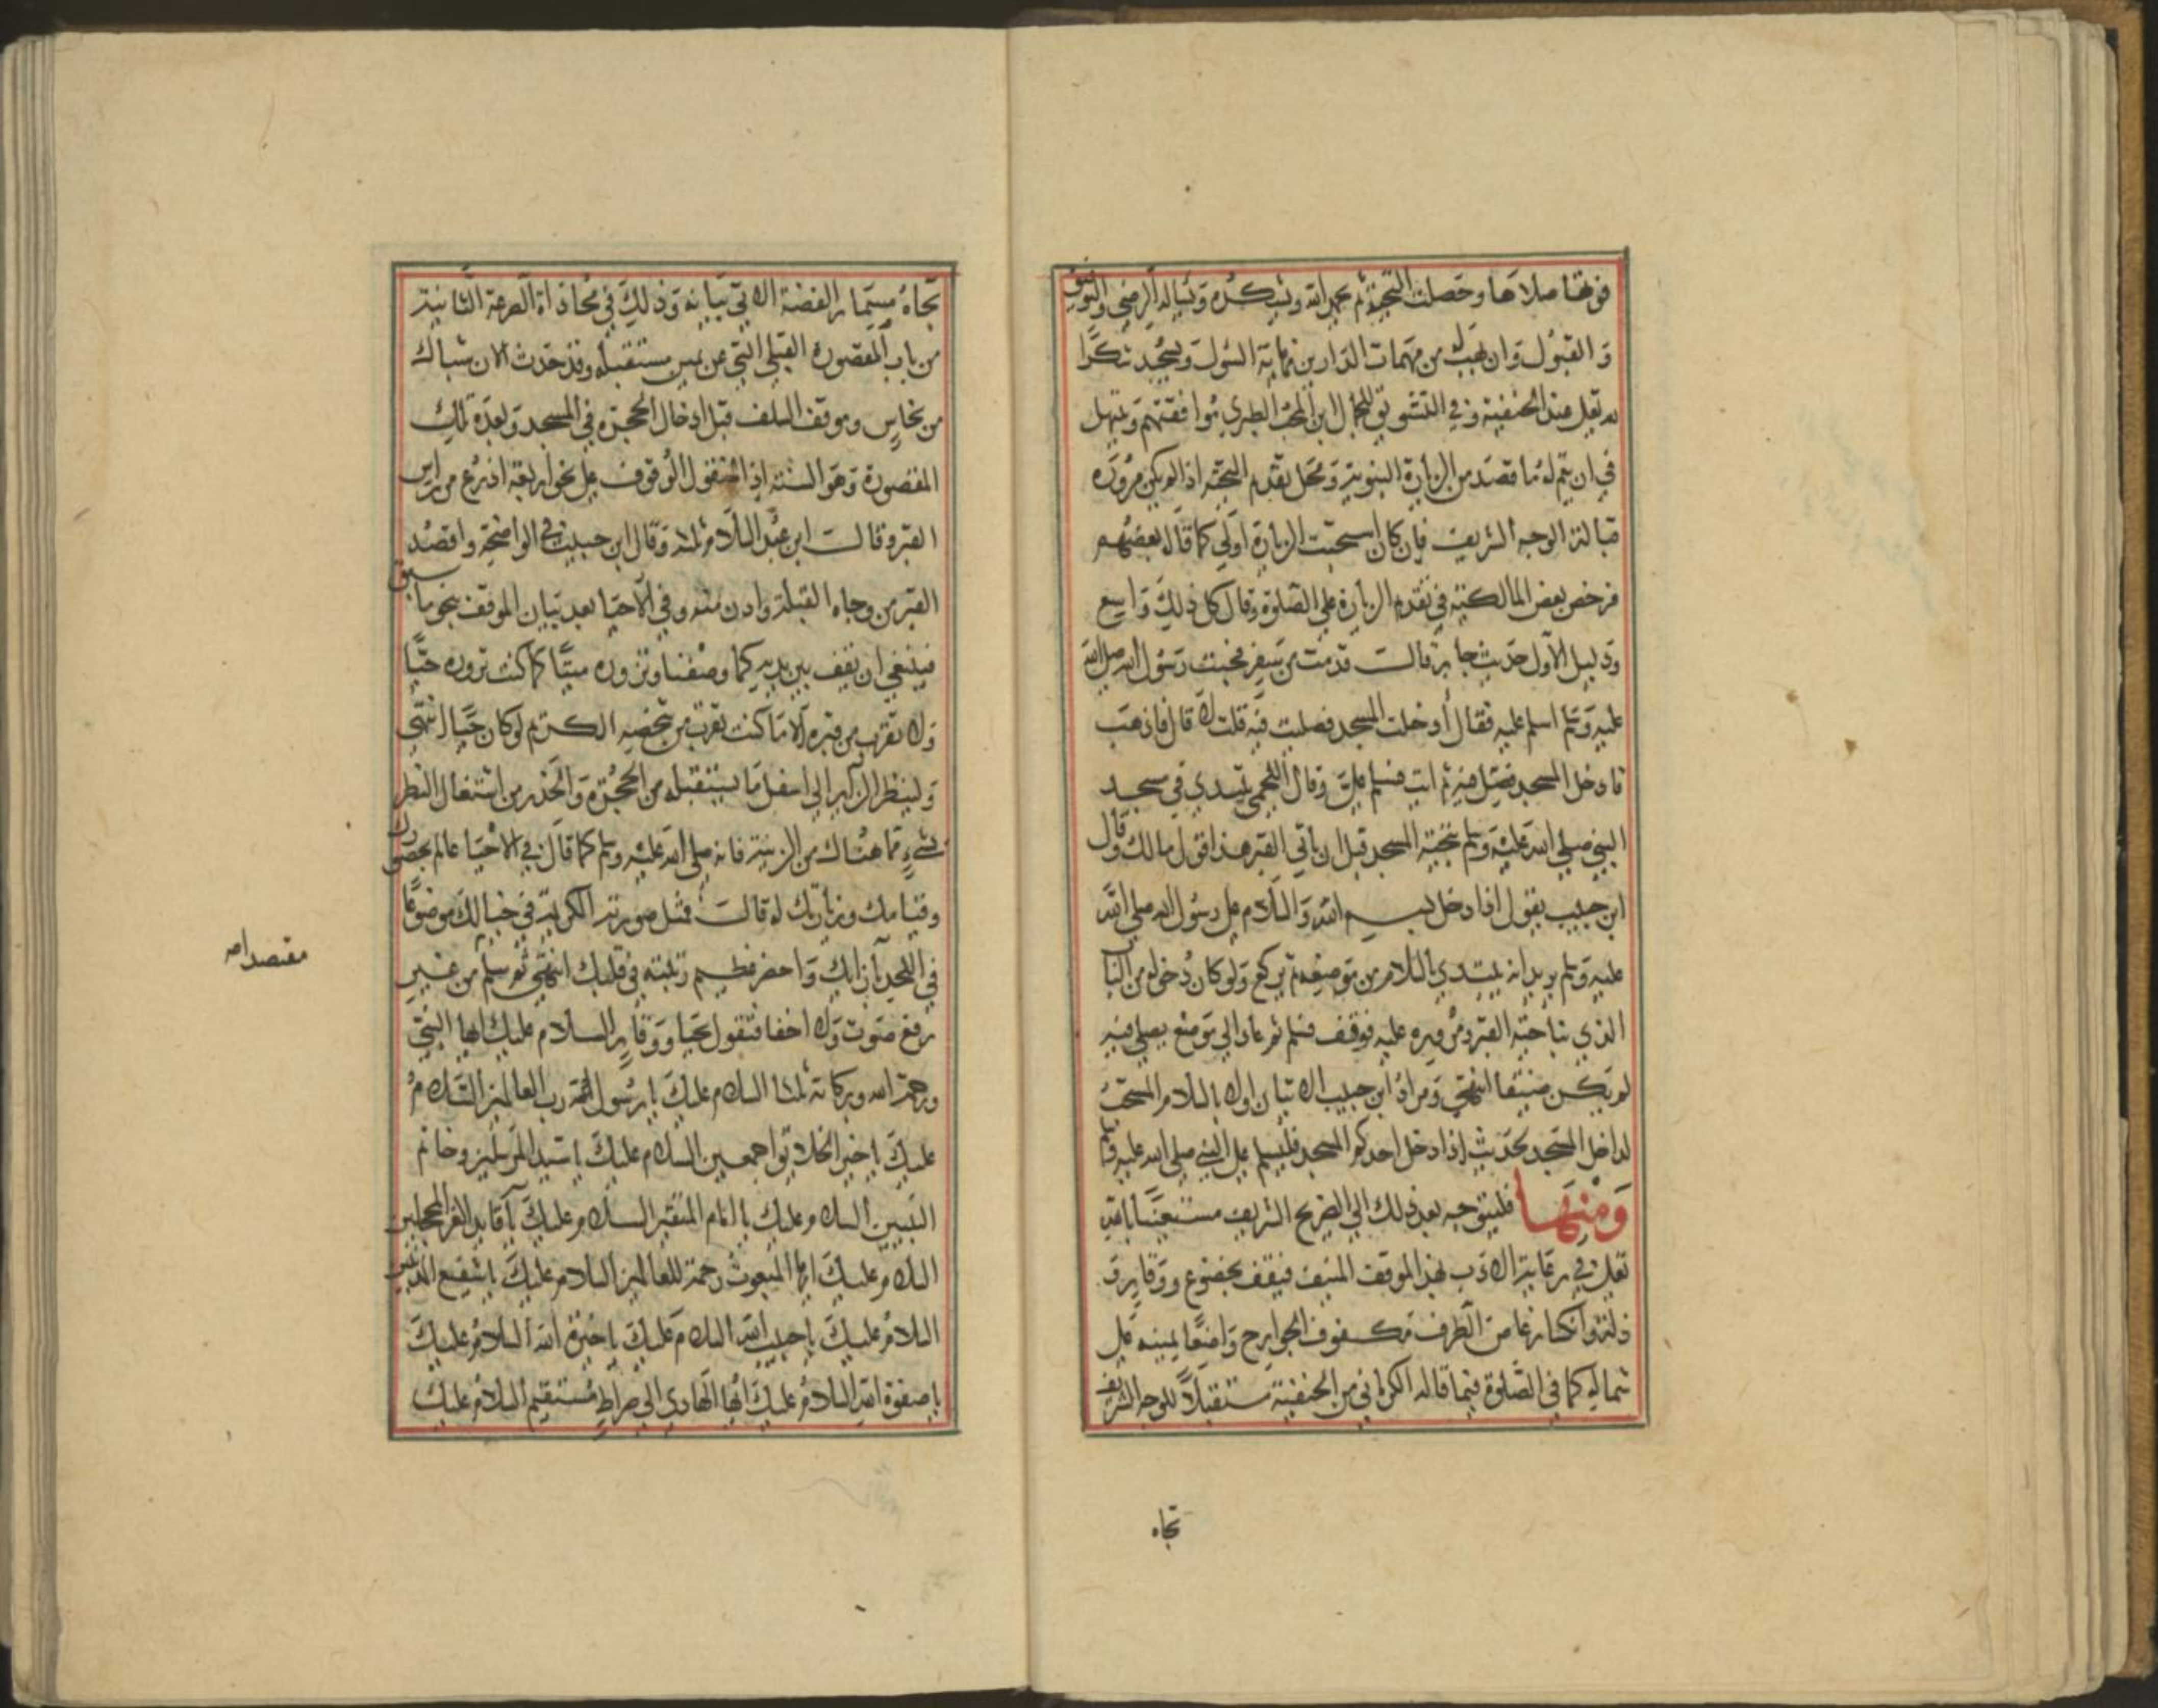 فوتها صلاها وحصلت التحية ثم يحمد الله ويشكره ويسأله الرضى والتوفيق
والقبول وان يهب له من مهمات الدارين نهاية السول ويسجد شكرا
لله تعالى عند الحنفية وفي التشويق للجمال ابن المحب الطبري موافقتهم ويبتهل
في ان يتم له ما قصد من الزيارة النبوية ومحل تقديم التحية اذا لم يكن مروره
قبالة الوجه الشريف فان كان استحبت الزيارة اولى كما قال بعضهم
فرخص بعض المالكية في تقديم الزيارة على الصلوة وقال كل ذلك واسع
ودليل الاول حديث جابر قالت قدمت من سفر فجئت رسول الله صلى الله
عليه وسلم اسلم عليه فقال أدخلت المسجد فصليت فيه قلت لا قال فاذهب
فادخل المسجد فصل فيه ثم ايت فسلم علي وقال اللخمي يبتدي في مسجد
النبي صلى الله عليه وسلم بتحية المسجد قبل ان ياتي القبر هذا قول مالك وقال
ابن حبيب يقول اذا دخل بسم الله والسلام على رسول الله صلى الله
عليه وسلم يريد انه يبتدي بالسلام من موضعه ثم يركع ولو كان دخوله من الباب
الذي بناحية القبر ومروره عليه فوقف فسلم ثم عاد الى موضع يصلي فيه
لم يكن ضيقا انتهى ومراد ابن حبيب الاتيان اولا بالسلام المستحب
لداخل المسجد لحديث اذا دخل احدكم المسجد فليسلم على النبي صلى الله عليه وسلم
ومنها فليتوجه بعد ذلك الى الضريح الشريف مستعينا بالله
تعالى في رعاية الادب لهذا الموقف المنيف فيقف بخضوع ووقار و
ذلة وانكسار غاض الطرف مكفوف الجوارح واضعا يمينه على
شماله كما في الصلوة فيما قاله الكرماني من الحنفية مستقبلا للوجه الشريف
تجاه
تجاه مسمار الفضة الاتي بيانه وذلك في محاذاة الصرعة الثانية
من باب المقصورة القبلي التي عن يمين مستقبله وقد حدث الان شباك
من نحاس وموقف السلف قبل ادخال الحجرة في المسجد وبعده تلك
المقصورة وهو السنة اذ المنقول الوقوف على نحو اربعة اذرع من راس
القبر وقالت ابن عبد السلام ثلاثة وقال ابن حبيب في الواضحة واقصد
القبر من وجاه القبلة وادن منه وفي الاحيا بعد بيان الموقف بنحو ما سبق
فينبغي ان تقف بين يديه كما وصفنا وتزوره ميتا كما كنت تزوره حيا
ولا تقرب من قبره الا ما كنت تقرب من شخصه الكريم لو كان حيا انتهى
ولينظر الزاير الى اسفل ما يستقبله من الحجرة والحذر من اشتغال النظر
بشيء مما هناك من الزينة فانه صلى الله عليه وسلم كما قال في الاحيا عالم بحضورك
وقيامك وزيارتك له قالت فمثل صورته الكريمة في خيالك موضوعا
في اللحد بازايك واحضر عظيم رتبته في قلبك انتهى ثم سلم من غير
رفع صوت ولا اخفا فتقول بحيا ووقار السلام عليك ايها النبي
ورحمة الله وبركاته ثلثا السلام عليك يا رسول الله رب العالمين السلام
عليك يا خير الخلايق اجمعين السلام عليك يا سيد المرسلين وخاتم
النبيين السلام عليك يا امام المتقين السلام عليك يا قايد الغر المحجلين
السلام عليك ايها المبعوث رحمة للعالمين السلام عليك يا شفيع المذنبين
السلام عليك يا حبيب الله السلام عليك يا خيرة الله السلام عليك
يا صفوة الله السلام عليك ايها الهادي الى صراط مستقيم السلام عليك